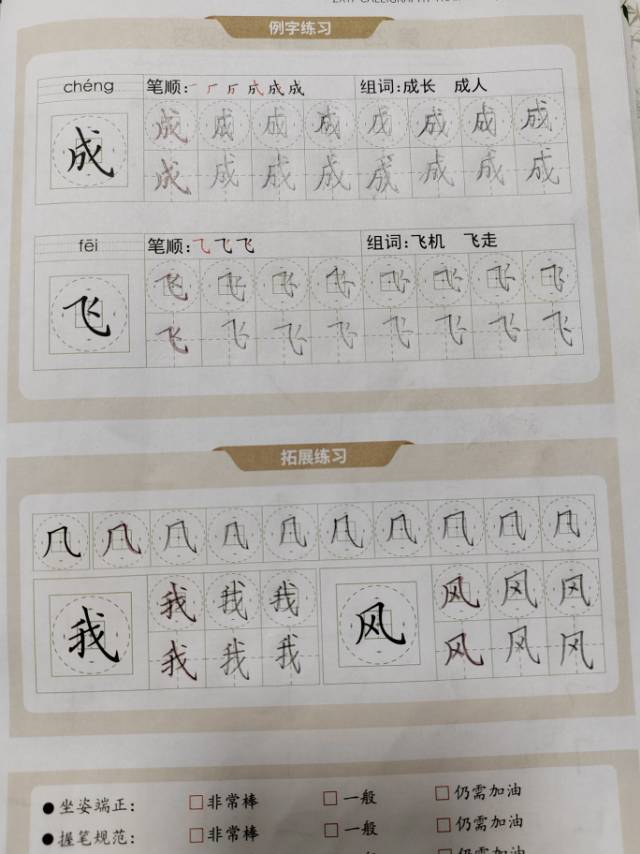 例字练习
chéng 笔顺: 组词:成长 成人
成 成 成 成 成 成 成 成 成
成 成 成 成 成 成 成 成
fēi 笔顺: 组词:飞机 飞走
飞 飞 飞 飞 飞 飞 飞 飞 飞
飞 飞 飞 飞 飞 飞 飞 飞
拓展练习
几 几 几 几 几 几 几 几 几 几
我 我 我 我 风 风 风 风
我 我 我 风 风 风
●坐姿端正: □非常棒 □一般 □仍需加油
●握笔规范: □非常棒 □一般 □仍需加油